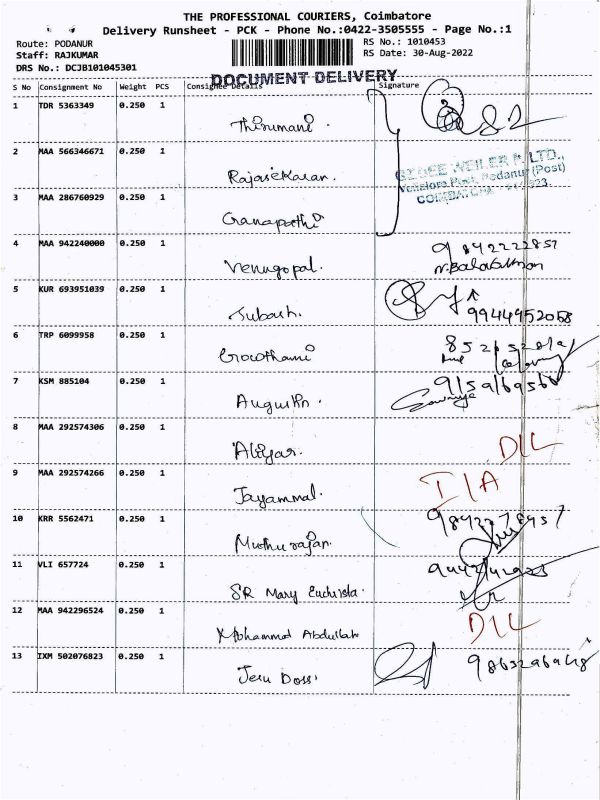 THE PROFESSIONAL COURIERS, Coimbatore
Delivery Runsheet - PCK - Phone No.:0422-3505555 - Page No.:1
Route: PODANUR
RS No.: 1010453
Staff: RAJKUMAR
RS Date: 30-Aug-2022
DRS No.: DCJB101045301
DOCUMENT DELIVERY
S No Consignment No Weight PCS Consignee Details Signature
1 TDR 5363349 0.250 1
Thirumani.
2 MAA 566346671 0.250 1
Rajasekaran.
WEILER P. LTD.,
Vellalore Post, Podanur (Post)
3 MAA 286760929 0.250 1
Ganapathi
4 MAA 942240000 0.250 1 9842222857
Venugopal.
5 KUR 693951039 0.250 1
Subash. 9944952058
6 TRP 6099958 0.250 1
Gowthami
7 KSM 885104 0.250 1
Augustin.
8 MAA 292574306 0.250 1
Aliyar. D/L
9 MAA 292574266 0.250 1
Jayammal. I/A
10 KRR 5562471 0.250 1
Muthurajan.
11 VLI 657724 0.250 1
SR Mary
12 MAA 942296524 0.250 1
Mohammad Abdullah D/L
13 IXM 502076823 0.250 1
Jesu Doss.